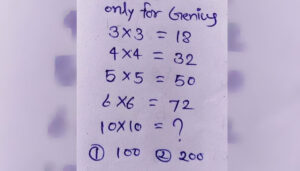 only for Genius
3×3 = 18
4×4 = 32
5×5 = 50
6×6 = 72
10×10 = ?
① 100 ② 200